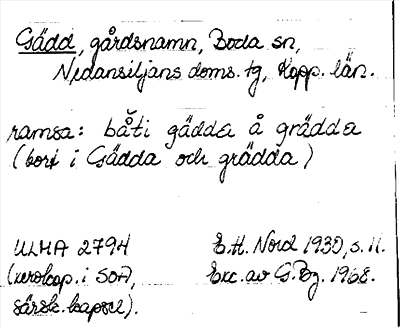 Gädd, gårdsnamn, Boda sn,
Nedansiljans doms. tg, Kopp. län.
ramsa: båti gädda å grädda
(bort i Gädda och grädda)
ULMA 2794 E.H. Nord 1930, s. 11.
(xerokop. i SOA, Exc. av G.Bg. 1968.
särsk. kapsel).